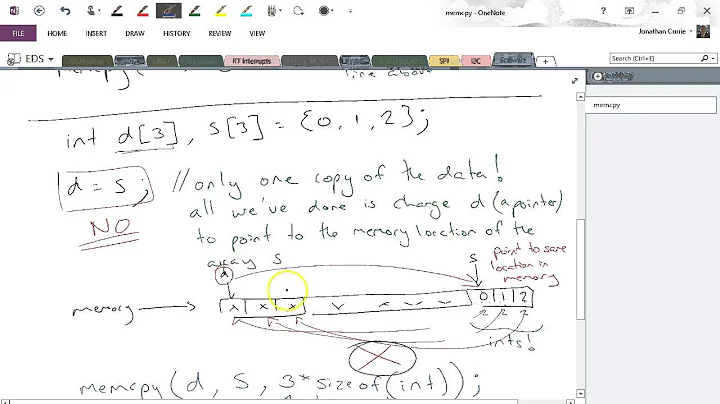 memcpy - OneNote
Jonathan Currie
FILE HOME INSERT DRAW HISTORY REVIEW VIEW
EDS RT Interrupts SPI I2C +
Search (Ctrl+E)
memcpy
memcpy(
line above
int d[3], s[3] = {0, 1, 2};
d = s; //only one copy of the data!
NO
all we've done is change d (a pointer)
to point to the memory location of the
array s
d
s
point to same
location in
memory
memory
x x x
0 1 2
ints!
memcpy(d, s, 3*sizeof(int));